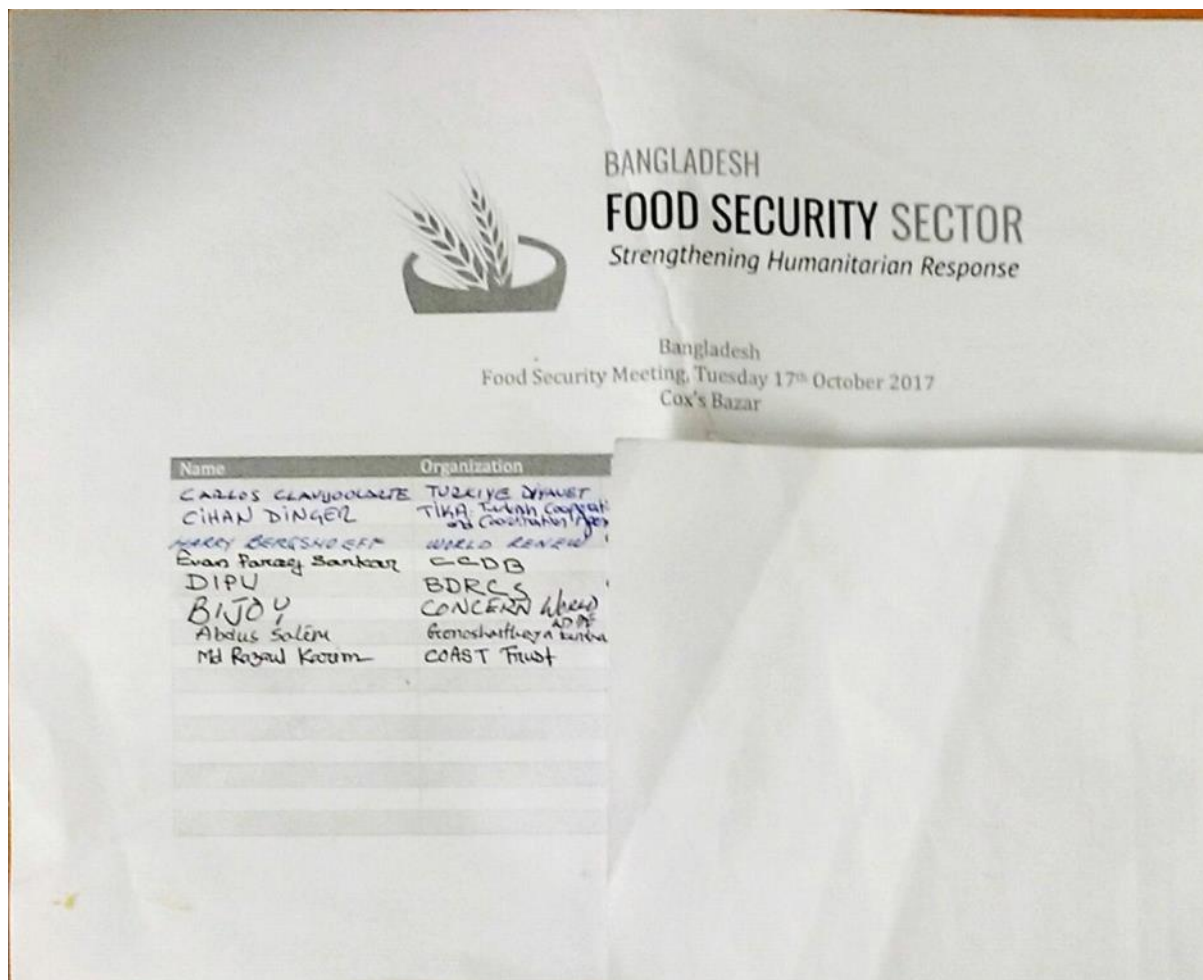 BANGLADESH
FOOD SECURITY SECTOR
Strengthening Humanitarian Response
Bangladesh
Food Security Meeting, Tuesday 17th October 2017
Cox's Bazar
Name Organization
CARLOS TURKIYE DIYANET
CIHAN DINGER TIKA Turkish
and Coordination
HARRY BERGSHOEFF WORLD RENEW
Evan Sankar CCDB
DIPU BDRCS
BIJOY CONCERN
Abdus Salem
Md Razaul Karim COAST Trust